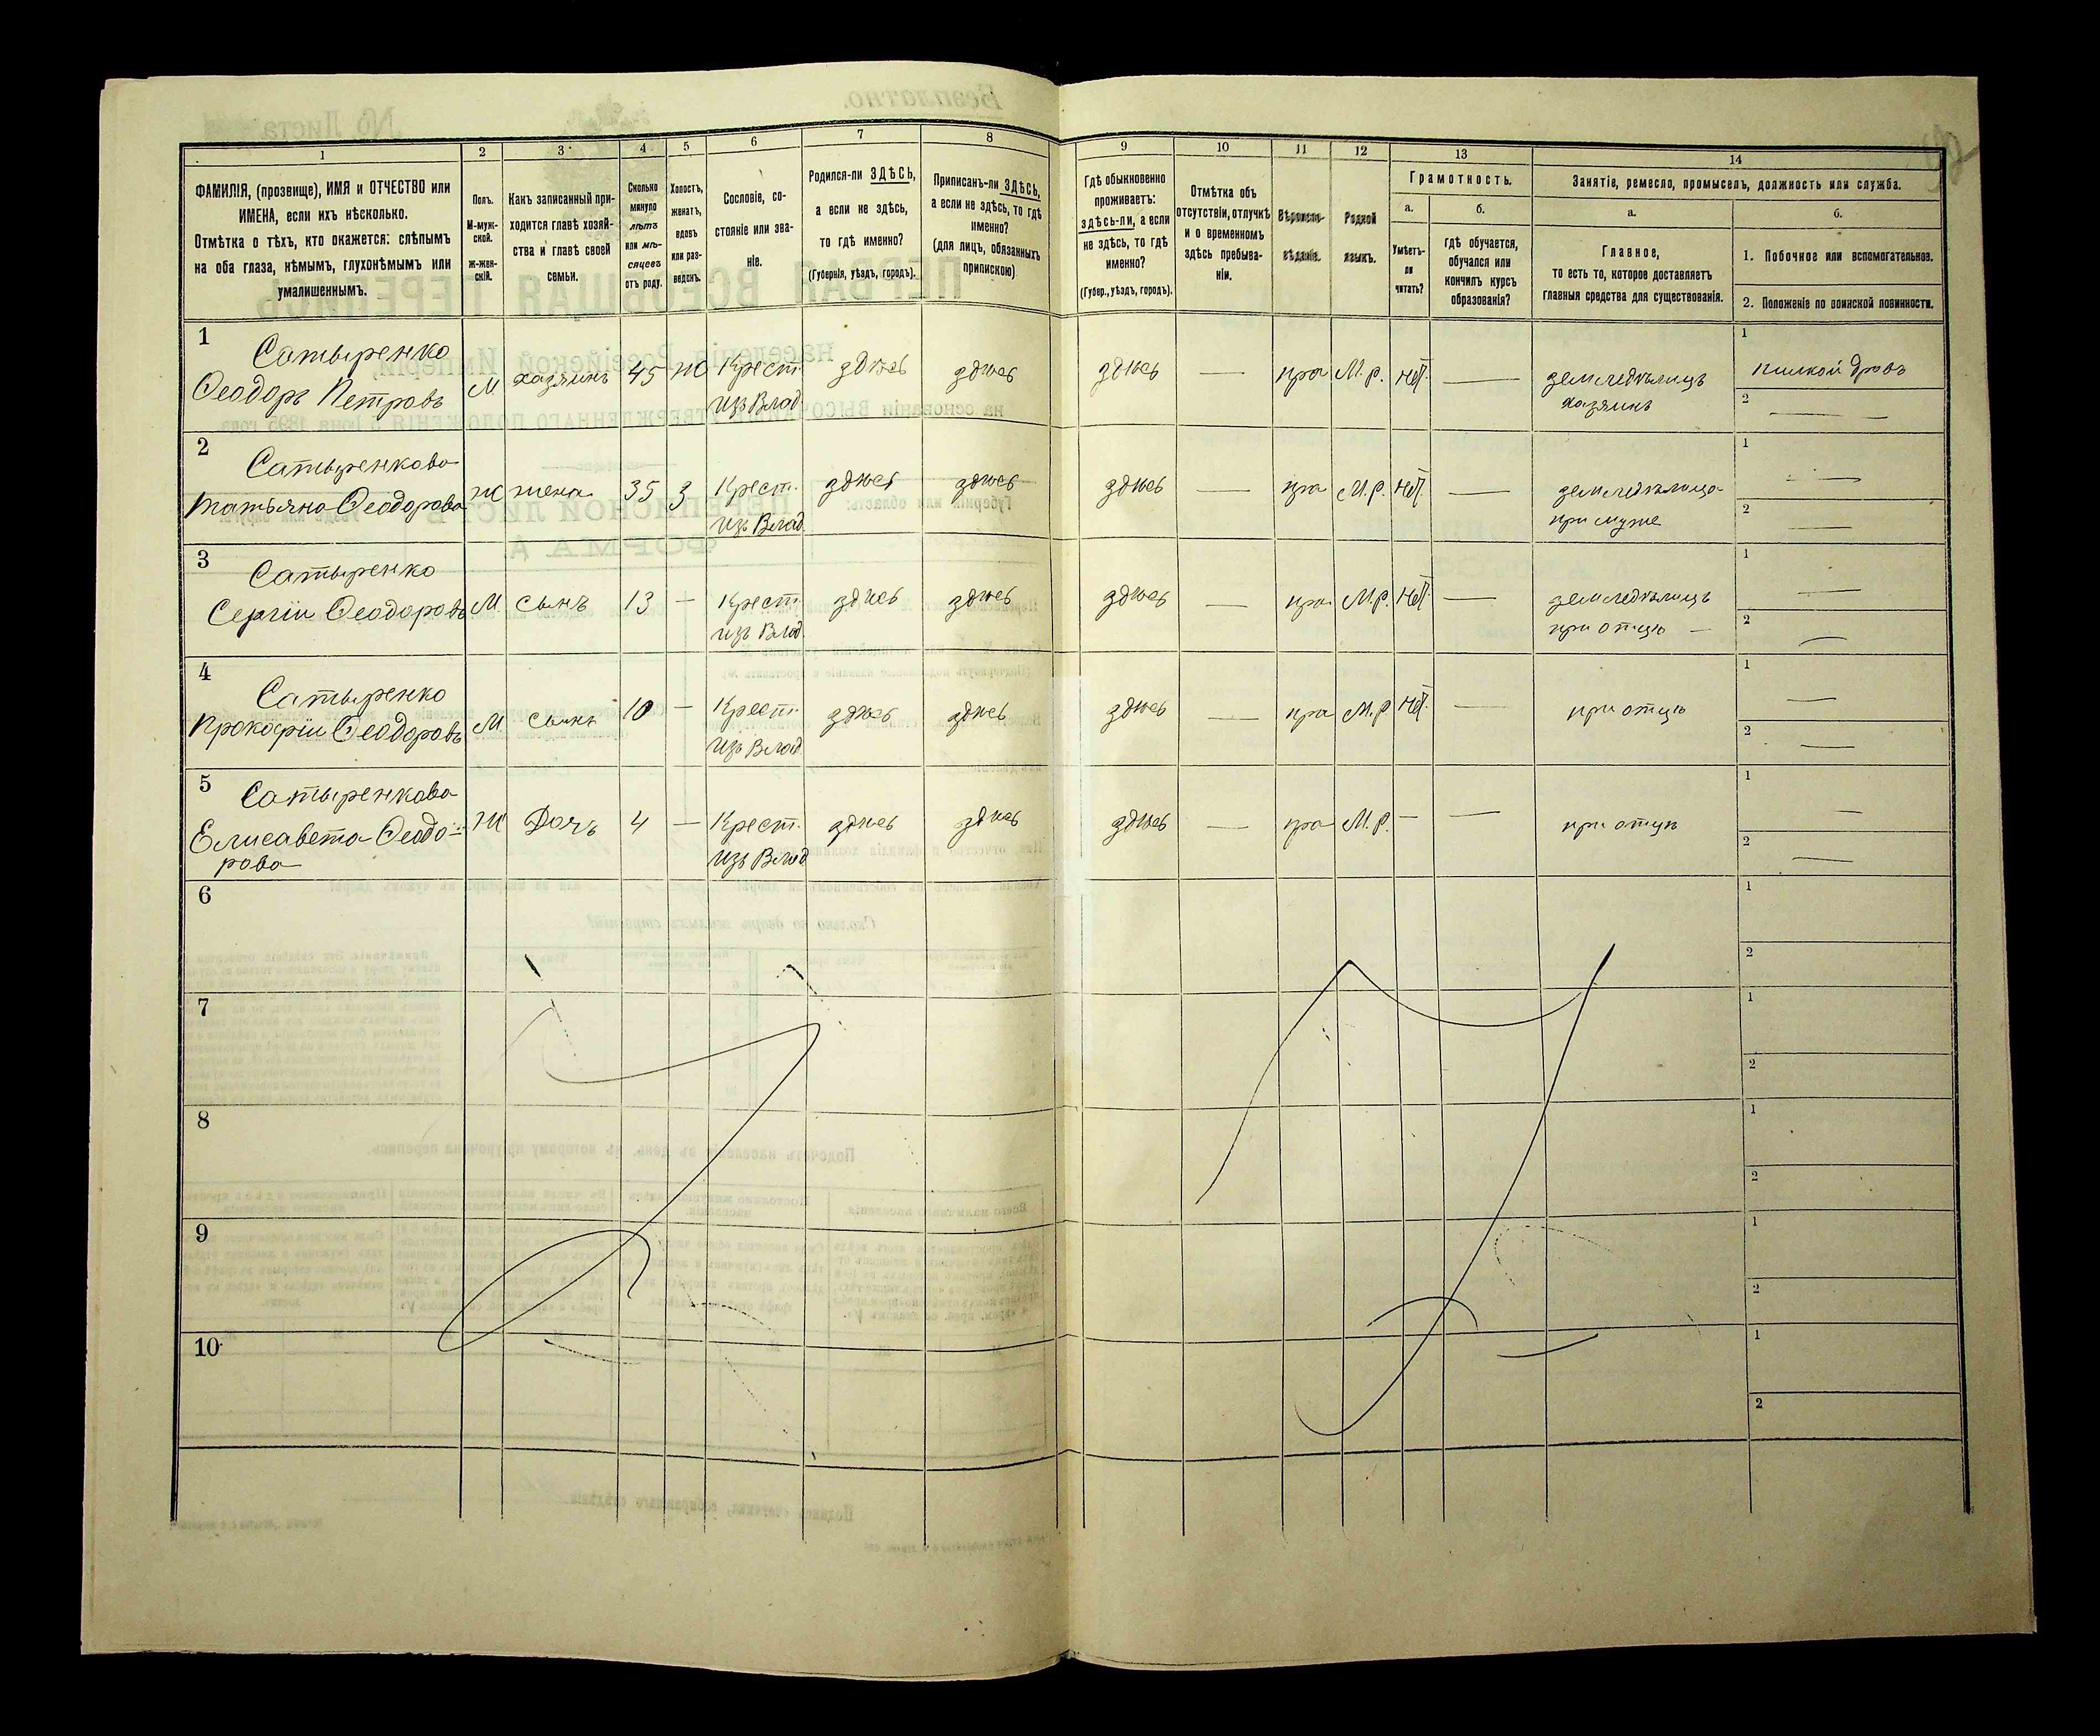 1 2 3 4 5 6 7 8 9 10 11 12 13 14
ФАМИЛІЯ, (прозвище), ИМЯ и ОТЧЕСТВО или
ИМЕНА, если ихъ нѣсколько.
Отмѣтка о тѣхъ, кто окажется: слѣпымъ
на оба глаза, нѣмымъ, глухонѣмымъ или
умалишеннымъ.
Полъ.
М-муж-
ской.
Ж-жен-
скій.
Какъ записанный при-
ходится главѣ хозяй-
ства и главѣ своей
семьи.
Сколько
минуло
лѣтъ
или мѣ-
сяцевъ
отъ роду.
Холостъ,
женатъ,
вдовъ
или раз-
веденъ.
Сословіе, со-
стояніе или зва-
ніе.
Родился-ли ЗДѢСЬ,
а если не здѣсь,
то гдѣ именно?
(Губернія, уѣздъ, городъ).
Приписанъ-ли ЗДѢСЬ,
а если не здѣсь, то гдѣ
именно?
(для лицъ, обязанныхъ
припискою)
Гдѣ обыкновенно
проживаетъ:
здѣсь-ли, а если
не здѣсь, то гдѣ
именно?
(Губер., уѣздъ, городъ).
Отмѣтка объ
отсутствіи, отлучкѣ
и о временномъ
здѣсь пребыва-
ніи.
Вѣроиспо-
вѣданіе.
Родной
языкъ.
Грамотность.
а.
Умѣетъ-
ли
читать?
б.
гдѣ обучается,
обучался или
кончилъ курсъ
образованія?
Занятіе, ремесло, промыселъ, должность или служба.
а.
Главное,
то есть то, которое доставляетъ
главныя средства для существованія.
б.
1. Побочное или вспомогательное.
2. Положеніе по воинской повинности.
1 Сатыренко
Ѳеодоръ Петровъ М хазяинъ 45 ж Крест. здѣсь здѣсь здѣсь — пра М.р. нѣт — земледѣлицъ 1 пилкой дровъ
изъ Влад. хазяинъ 2 —
2 Сатыренкова
Татьяна Ѳеодорова Ж жена 35 з Крест. здѣсь здѣсь здѣсь — пра М.р. нѣт — земледѣлица 1 —
изъ Влад. при мужѣ 2 —
3 Сатыренко
Сергѣи Ѳеодоровъ М. сынъ 13 — Крест. здѣсь здѣсь здѣсь — пра М.р. нѣт — земледѣлицъ 1 —
изъ Влад. при отцѣ — 2 —
4 Сатыренко
Прокофіи Ѳеодоровъ М сынъ 10 — Крест. здѣсь здѣсь здѣсь — пра М.р нѣт — при отцѣ 1 —
изъ Влад 2 —
5 Сатыренкова
Елисавета Ѳеодо- Ж Дочь 4 — Крест. здѣсь здѣсь здѣсь — пра М.р. — — при отцѣ 1 —
рова изъ Влад 2 —
6 1
2
7 1
2
8 1
2
9 1
2
10 1
2